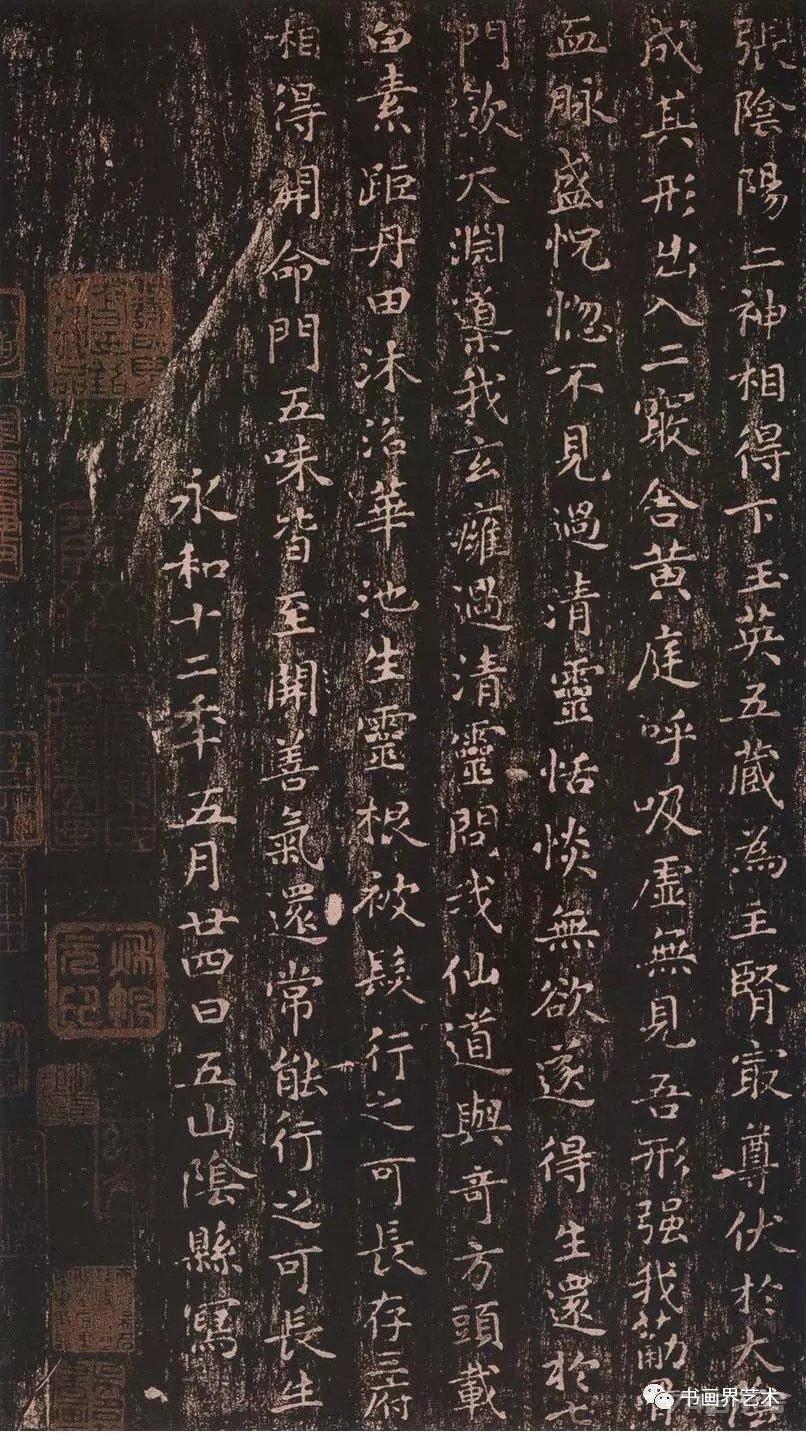 張陰陽二神相得下玉英五蔵為主腎㝡尊伏於大陰
成其形出入二竅舍黄庭呼吸虚無見吾形强我筋骨
血脉盛怳惚不見過清靈恬惔無欲遂得生還於七
門飲大淵𨕥我玄癰過清靈問我仙道與奇方頭載
白素距丹田沐浴華池生靈根被髮行之可長存三府
相得開命門五味皆至開善氣還常能行之可長生
永和十二年五月廿四日五山陰縣寫
书画界艺术